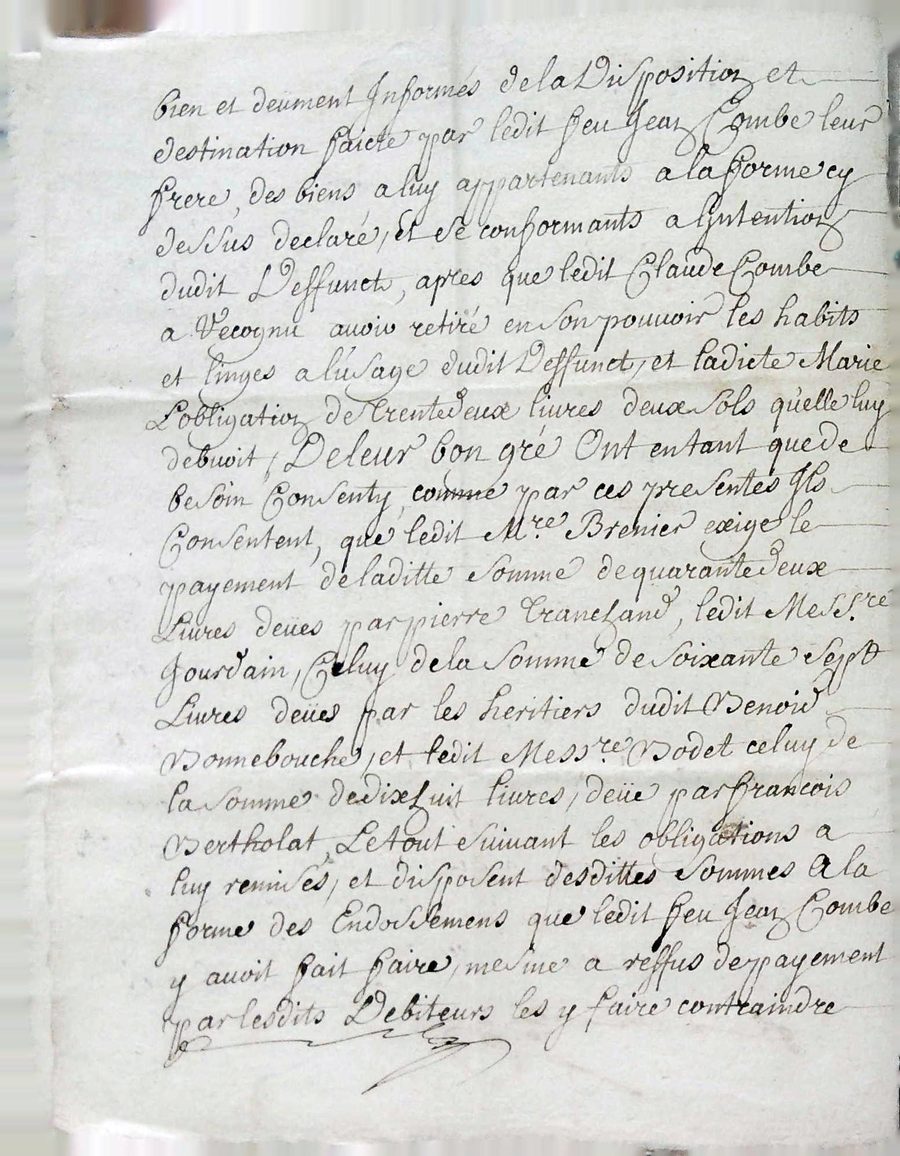 bien et deüment Informés de la Disposition et
destination faicte par ledit feu Jean Combe leur
frere, des biens a luy appartenants a la forme cy
dessus declaré, et se conformants a lIntention
dudit Deffunct, apres que ledit Claude Combe
a recognu avoir retiré en son pouvoir les habits
et linges a lusage dudit Deffunct, et ladicte Marie
Lobligation de trente deux livres deux sols quelle luy
debvoit, De leur bon gré Ont en tant que de
besoin Consenty, comme par ces presentes Ils
Consentent, que ledit M.re Brenier exige le
payement de laditte somme de quarante deux
Livres deues par pierre Tranchand, ledit Mess.re
Jourdain, Celuy de la somme de soixante Sept
Livres deües par les heritiers dudit Benoid
Bonnebouche, et ledit Mess.re Bodet celuy de
la somme de dixhuit livres, deüe par francois
Bertholat, Le tout suivant les obligations a
luy remises, et disposent desdittes sommes A la
forme des Endossemens que ledit feu Jean Combe
y avoit fait faire, mesme a reffus de payement
par lesdits Debiteurs les y faire contraindre